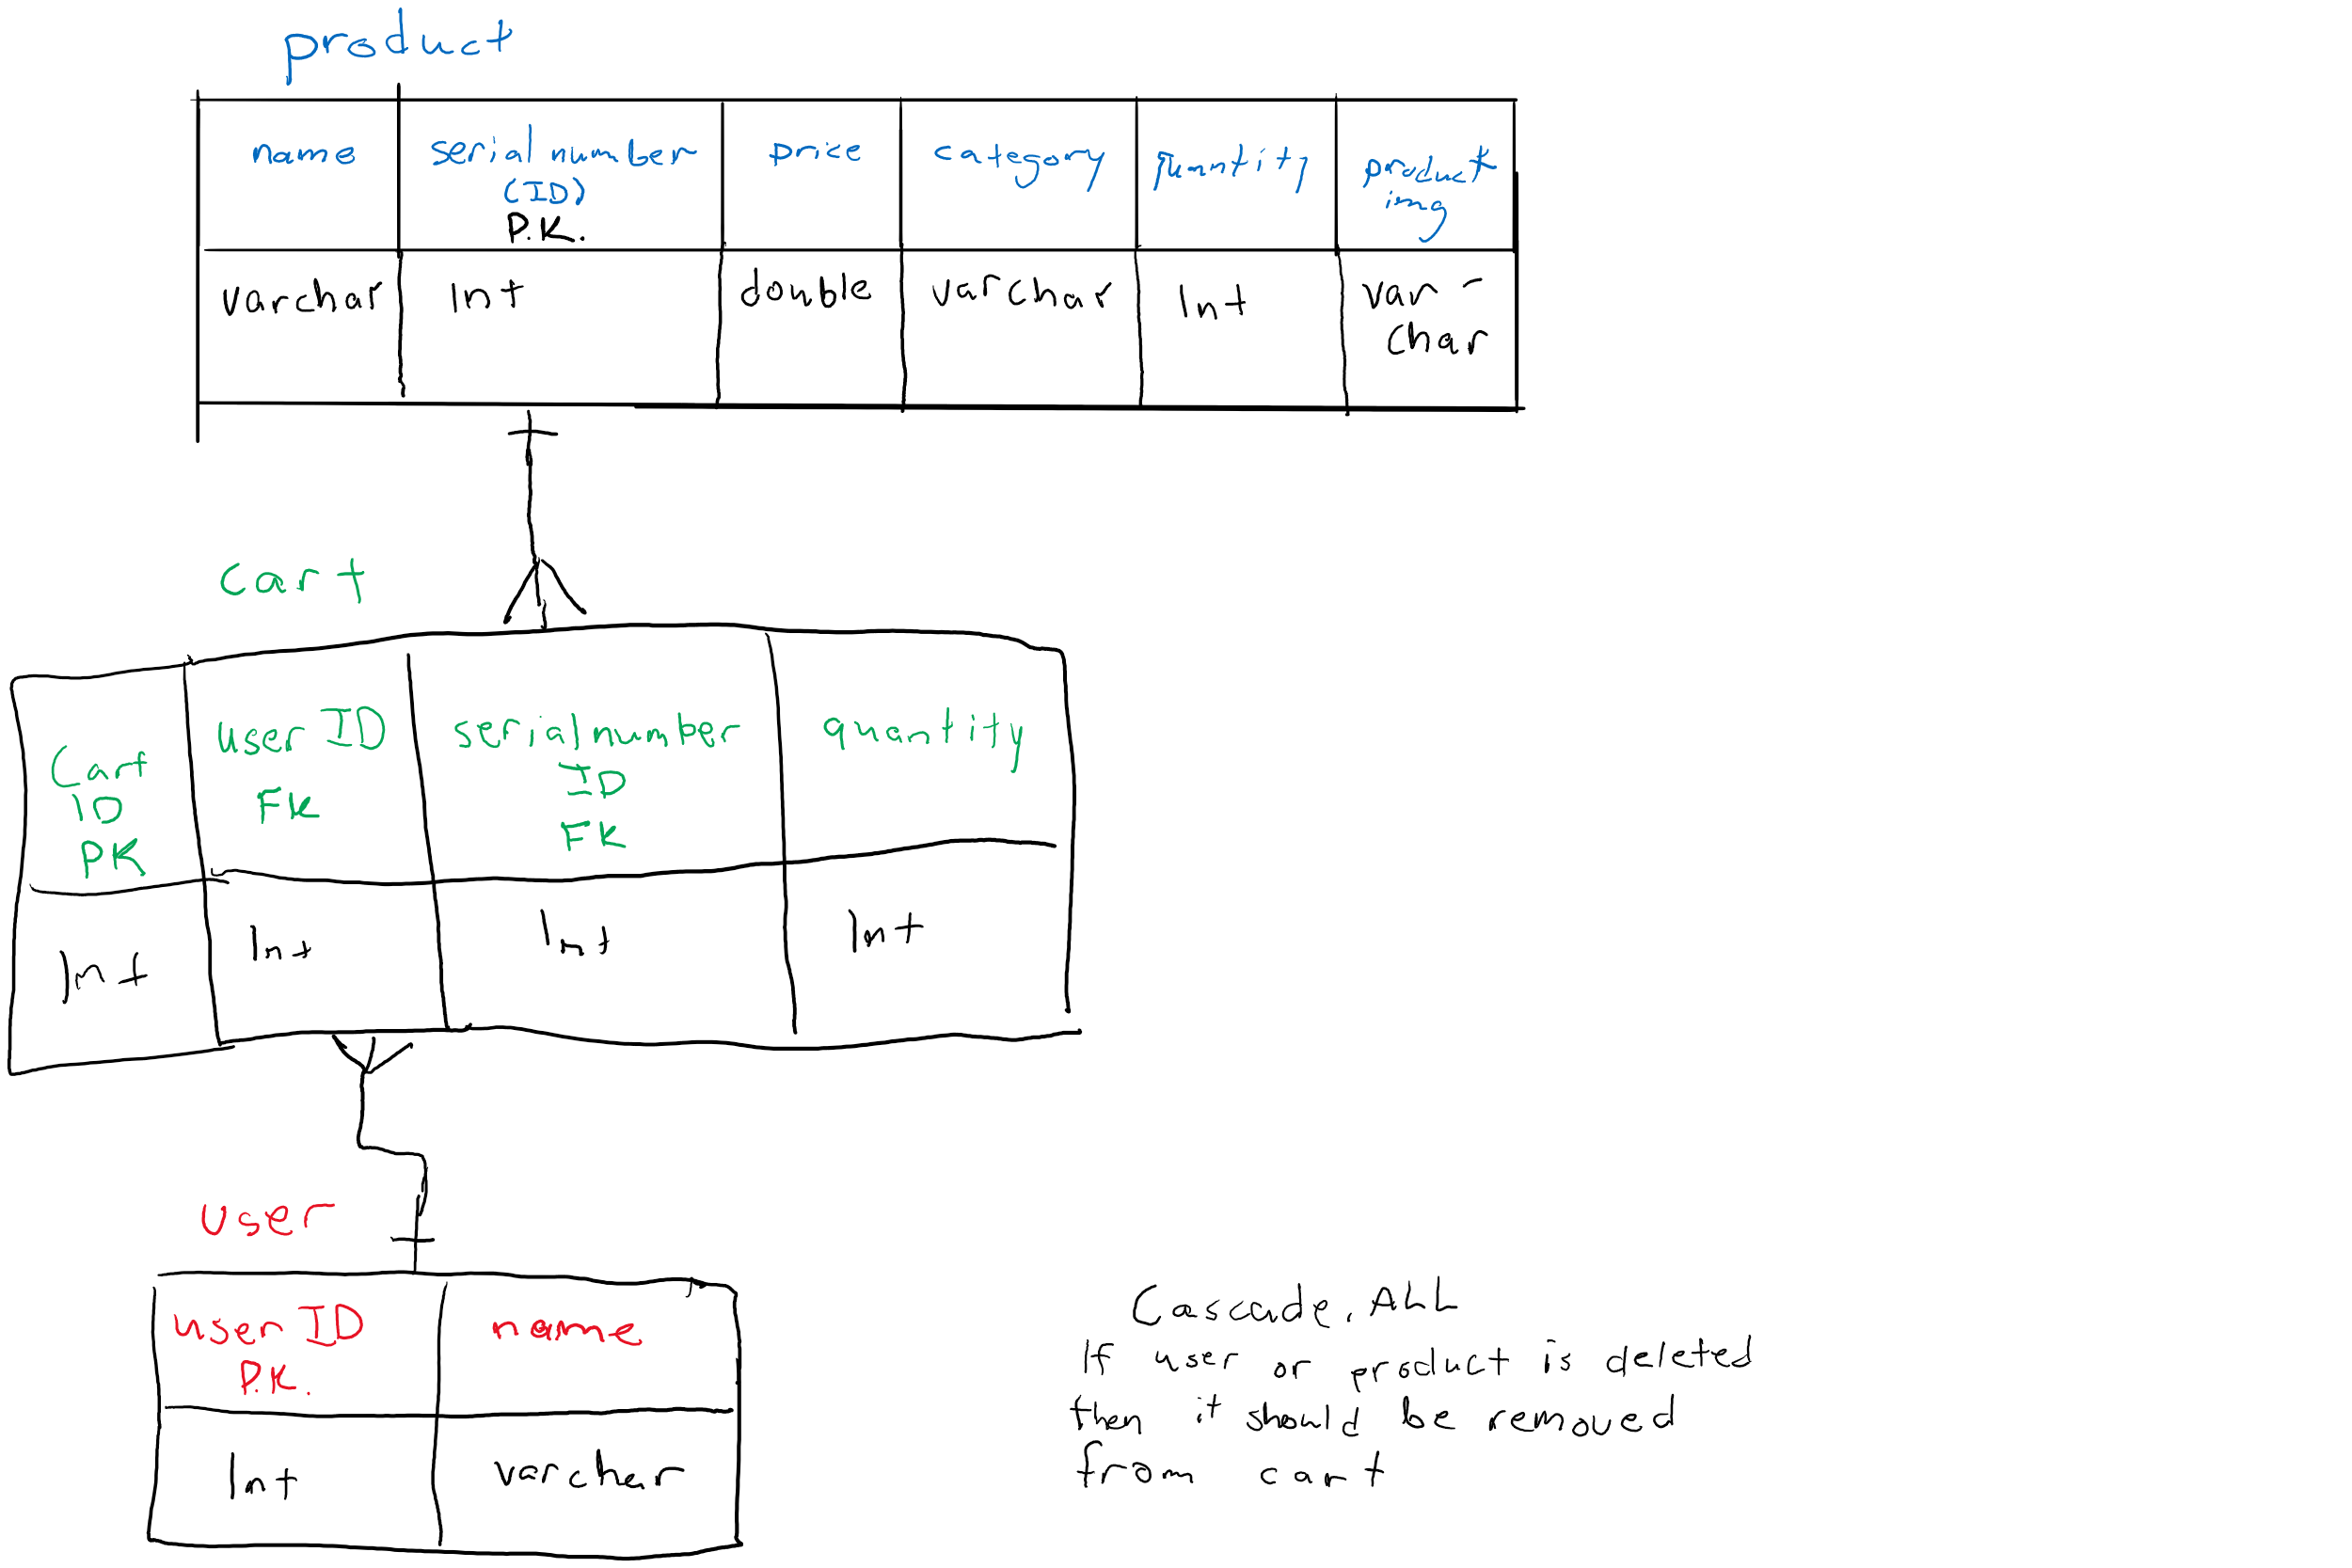 product
name serial number price category quantity product
(ID) img
P.K.
varchar Int double varchar Int var-
char
cart
Cart user ID serial number quantity
ID FK ID
PK FK
Int Int Int Int
user
user ID name
P.K.
Int varchar
Cascade.ALL
If user or product is deleted
then it should be removed
from cart